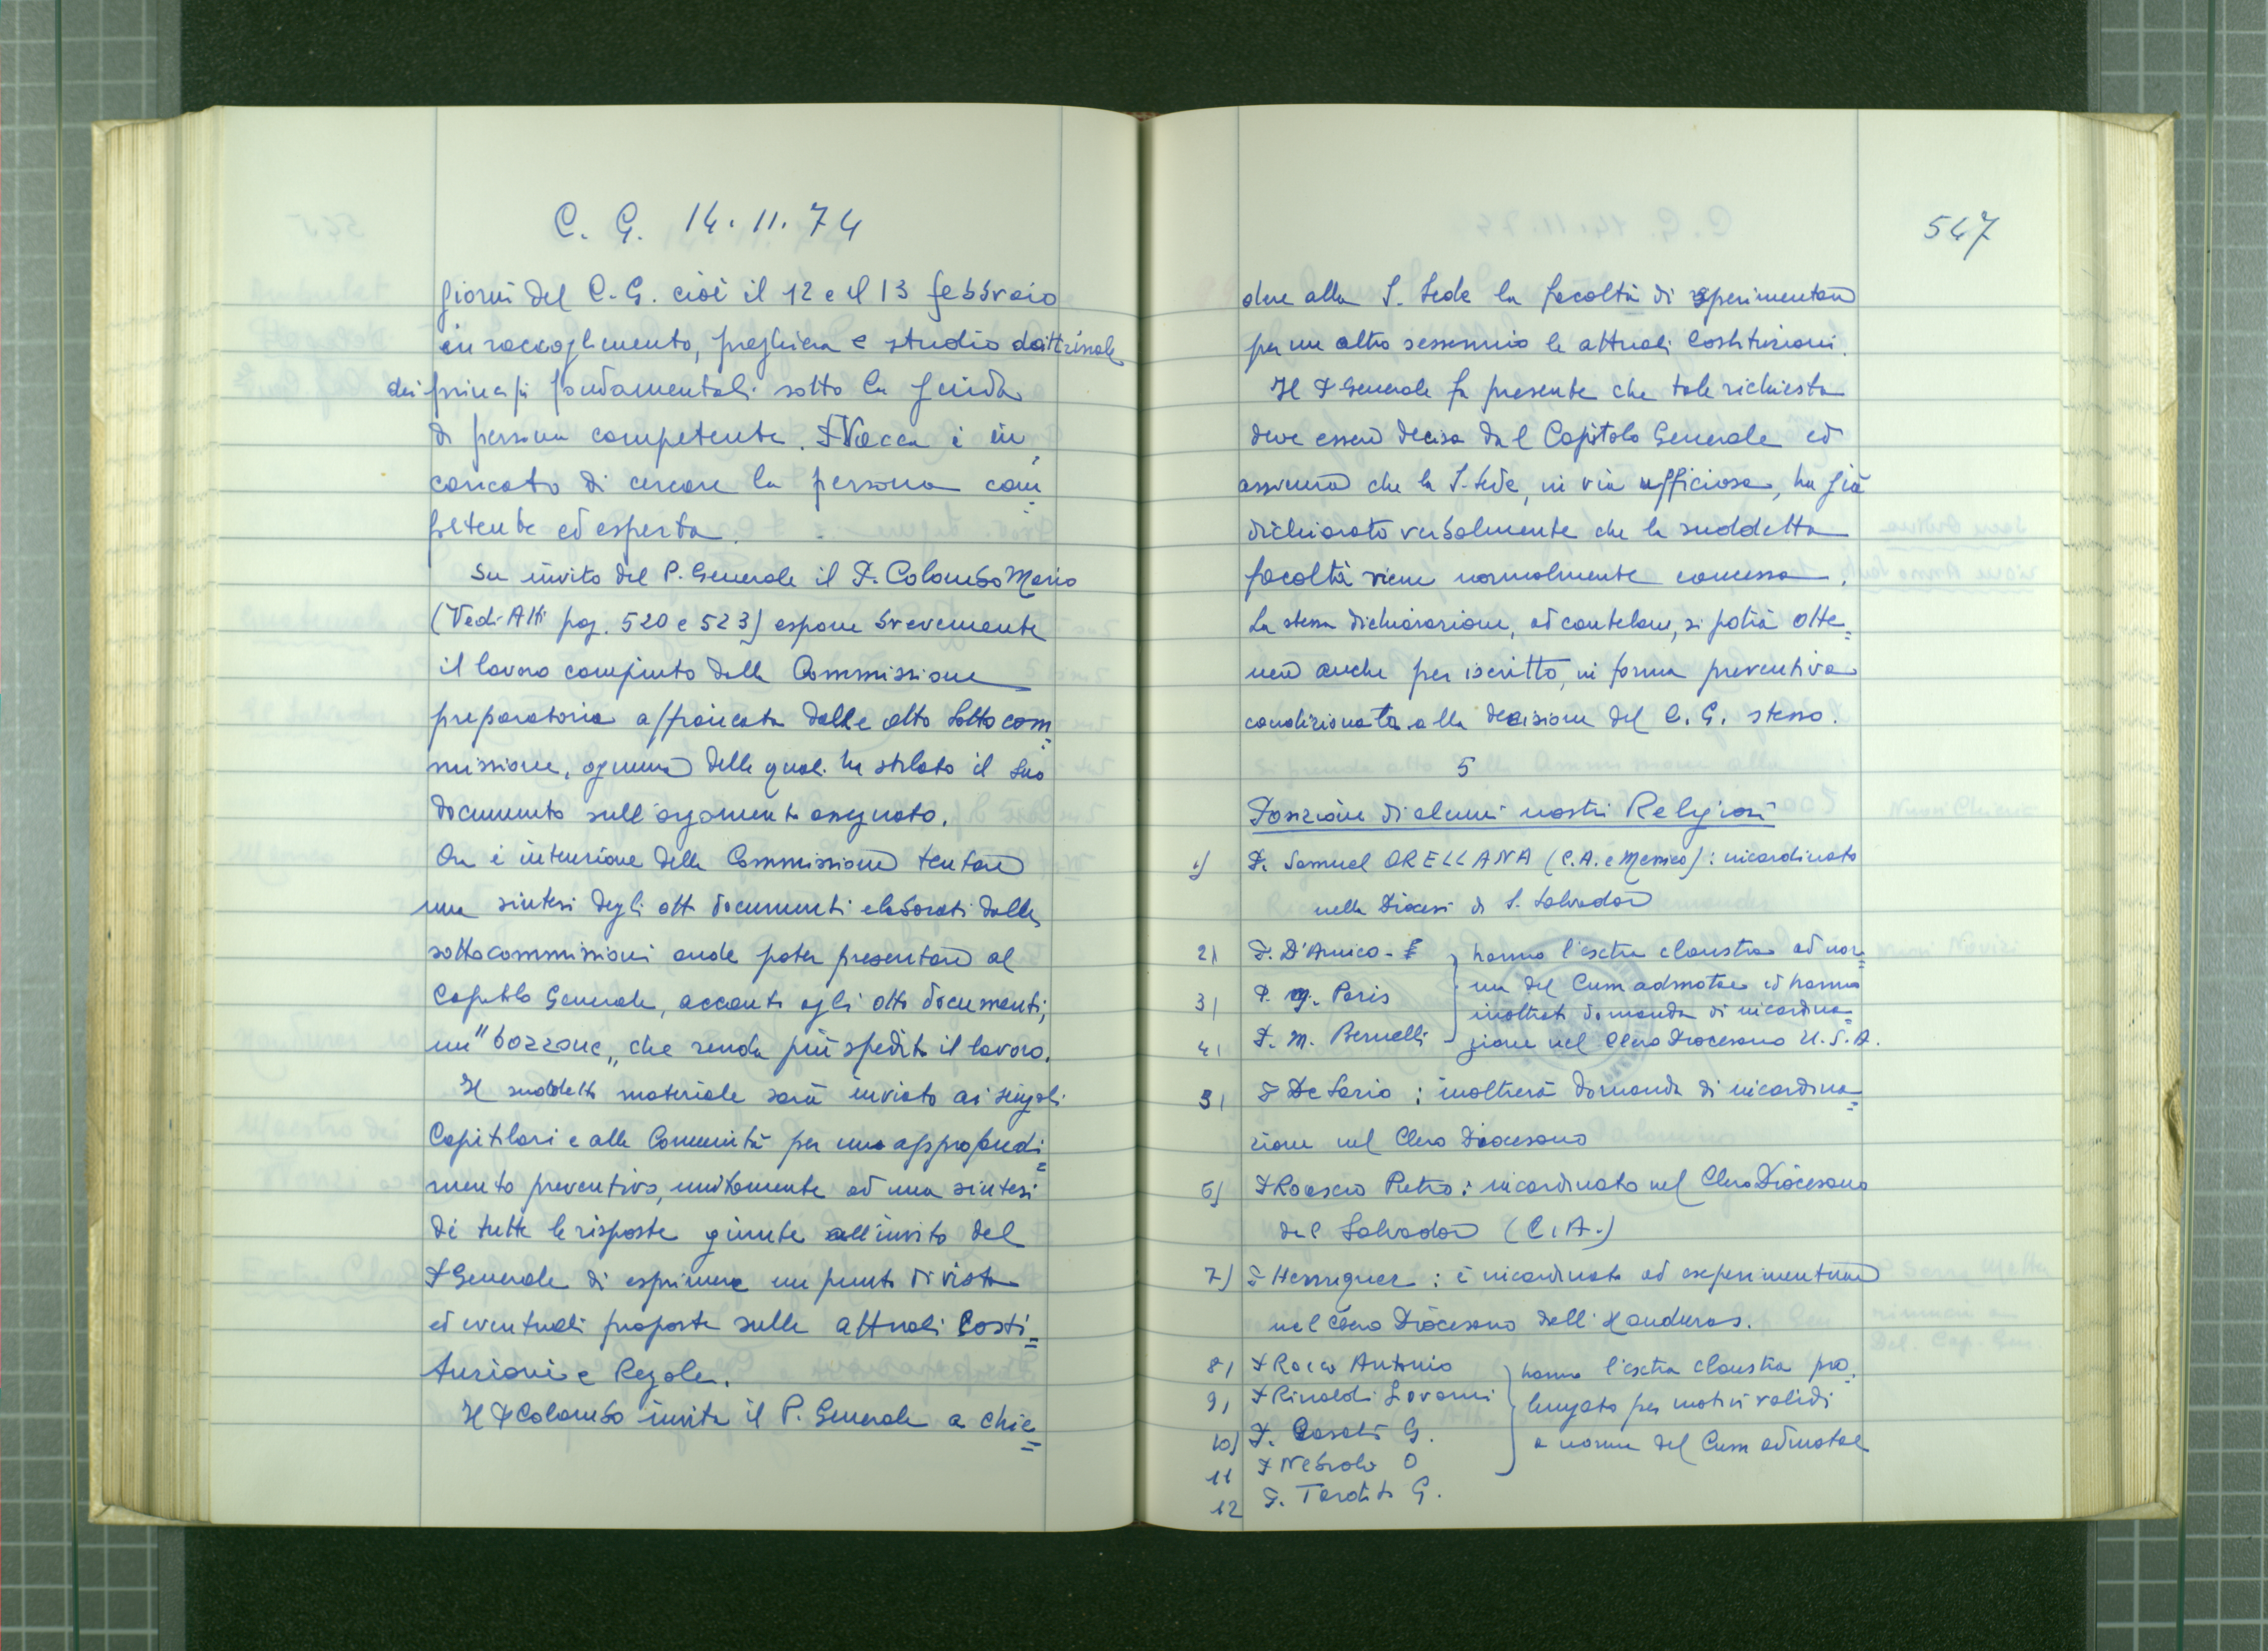 C. G. 14.11.74
giorni del C.G. cioè il 12 e il 13 febbraio
in raccoglimento, preghiera e studio dottrinale
dei principi fondamentali sotto la guida
di persona competente. P Vacca è in
caricato di cercare la persona com=
petente ed esperta.
Su invito del P. Generale il P. Colombo Mario
(Vedi Atti pag. 520 e 523) espone brevemente
il lavoro compiuto dalla Commissione
preparatoria affiancata dalle otto Sottocom=
missione, ognuna delle quali ha stilato il suo
documento sull'argomento assegnato.
Ora è intenzione della Commissione tentare
una sintesi degli otto documenti elaborati dalle
sottocommissioni onde poter presentare al
Capitolo Generale, accanto agli otto documenti,
un "bozzone" che renda più spedito il lavoro.
Il suddetto materiale sarà inviato ai singoli
Capitolari e alle Comunità per uno approfondi=
mento preventivo, unitamente ad una sintesi
di tutte le risposte giunte all'invito del
P Generale di esprimere un punto di vista
ed eventuali proposte sulle attuali Costi=
tuzioni e Regole.
Il P Colombo invita il P. Generale a chie=
547
dere alla S. Sede la facoltà di sperimentare
per un altro sessennio le attuali Costituzioni.
Il P Generale fa presente che tale richiesta
deve essere decisa dal Capitolo Generale ed
assicura che la S. Sede, in via ufficiosa, ha già
dichiarato verbalmente che la suddetta
facoltà viene normalmente concessa.
La stessa dichiarazione, ad cautelam, si potrà otte=
nere anche per iscritto, in forma preventiva
condizionata alla decisione del C. G. stesso.
5
Posizione di alcuni nostri Religiosi
1) P. Samuel ORELLANA (C.A. e Messico): incardinato
nella Diocesi di S. Salvador
2) P. D'Amico - hanno l'extra claustra ad nor=
3) P. Paris ma del Cum admotae ed hanno
inoltrato domanda di incardina=
4) P. M. Bernelli zione nel Clero Diocesano U.S.A.
5) P De Sario: inoltrerà domanda di incardina=
zione nel Clero Diocesano
6) P Roascio Pietro: incardinato nel Clero Diocesano
del Salvador (C.A.)
7) P Henriquez: è incardinato ad experimentum
nel Clero Diocesano dell'Honduras.
8) P Rocco Antonio hanno l'extra claustra pro=
9) P Rinaldi Giovanni lungato per motivi validi
10) P. Casati G. a norma del Cum admotae
11 P Nebiolo O
12 P. Tardito G.